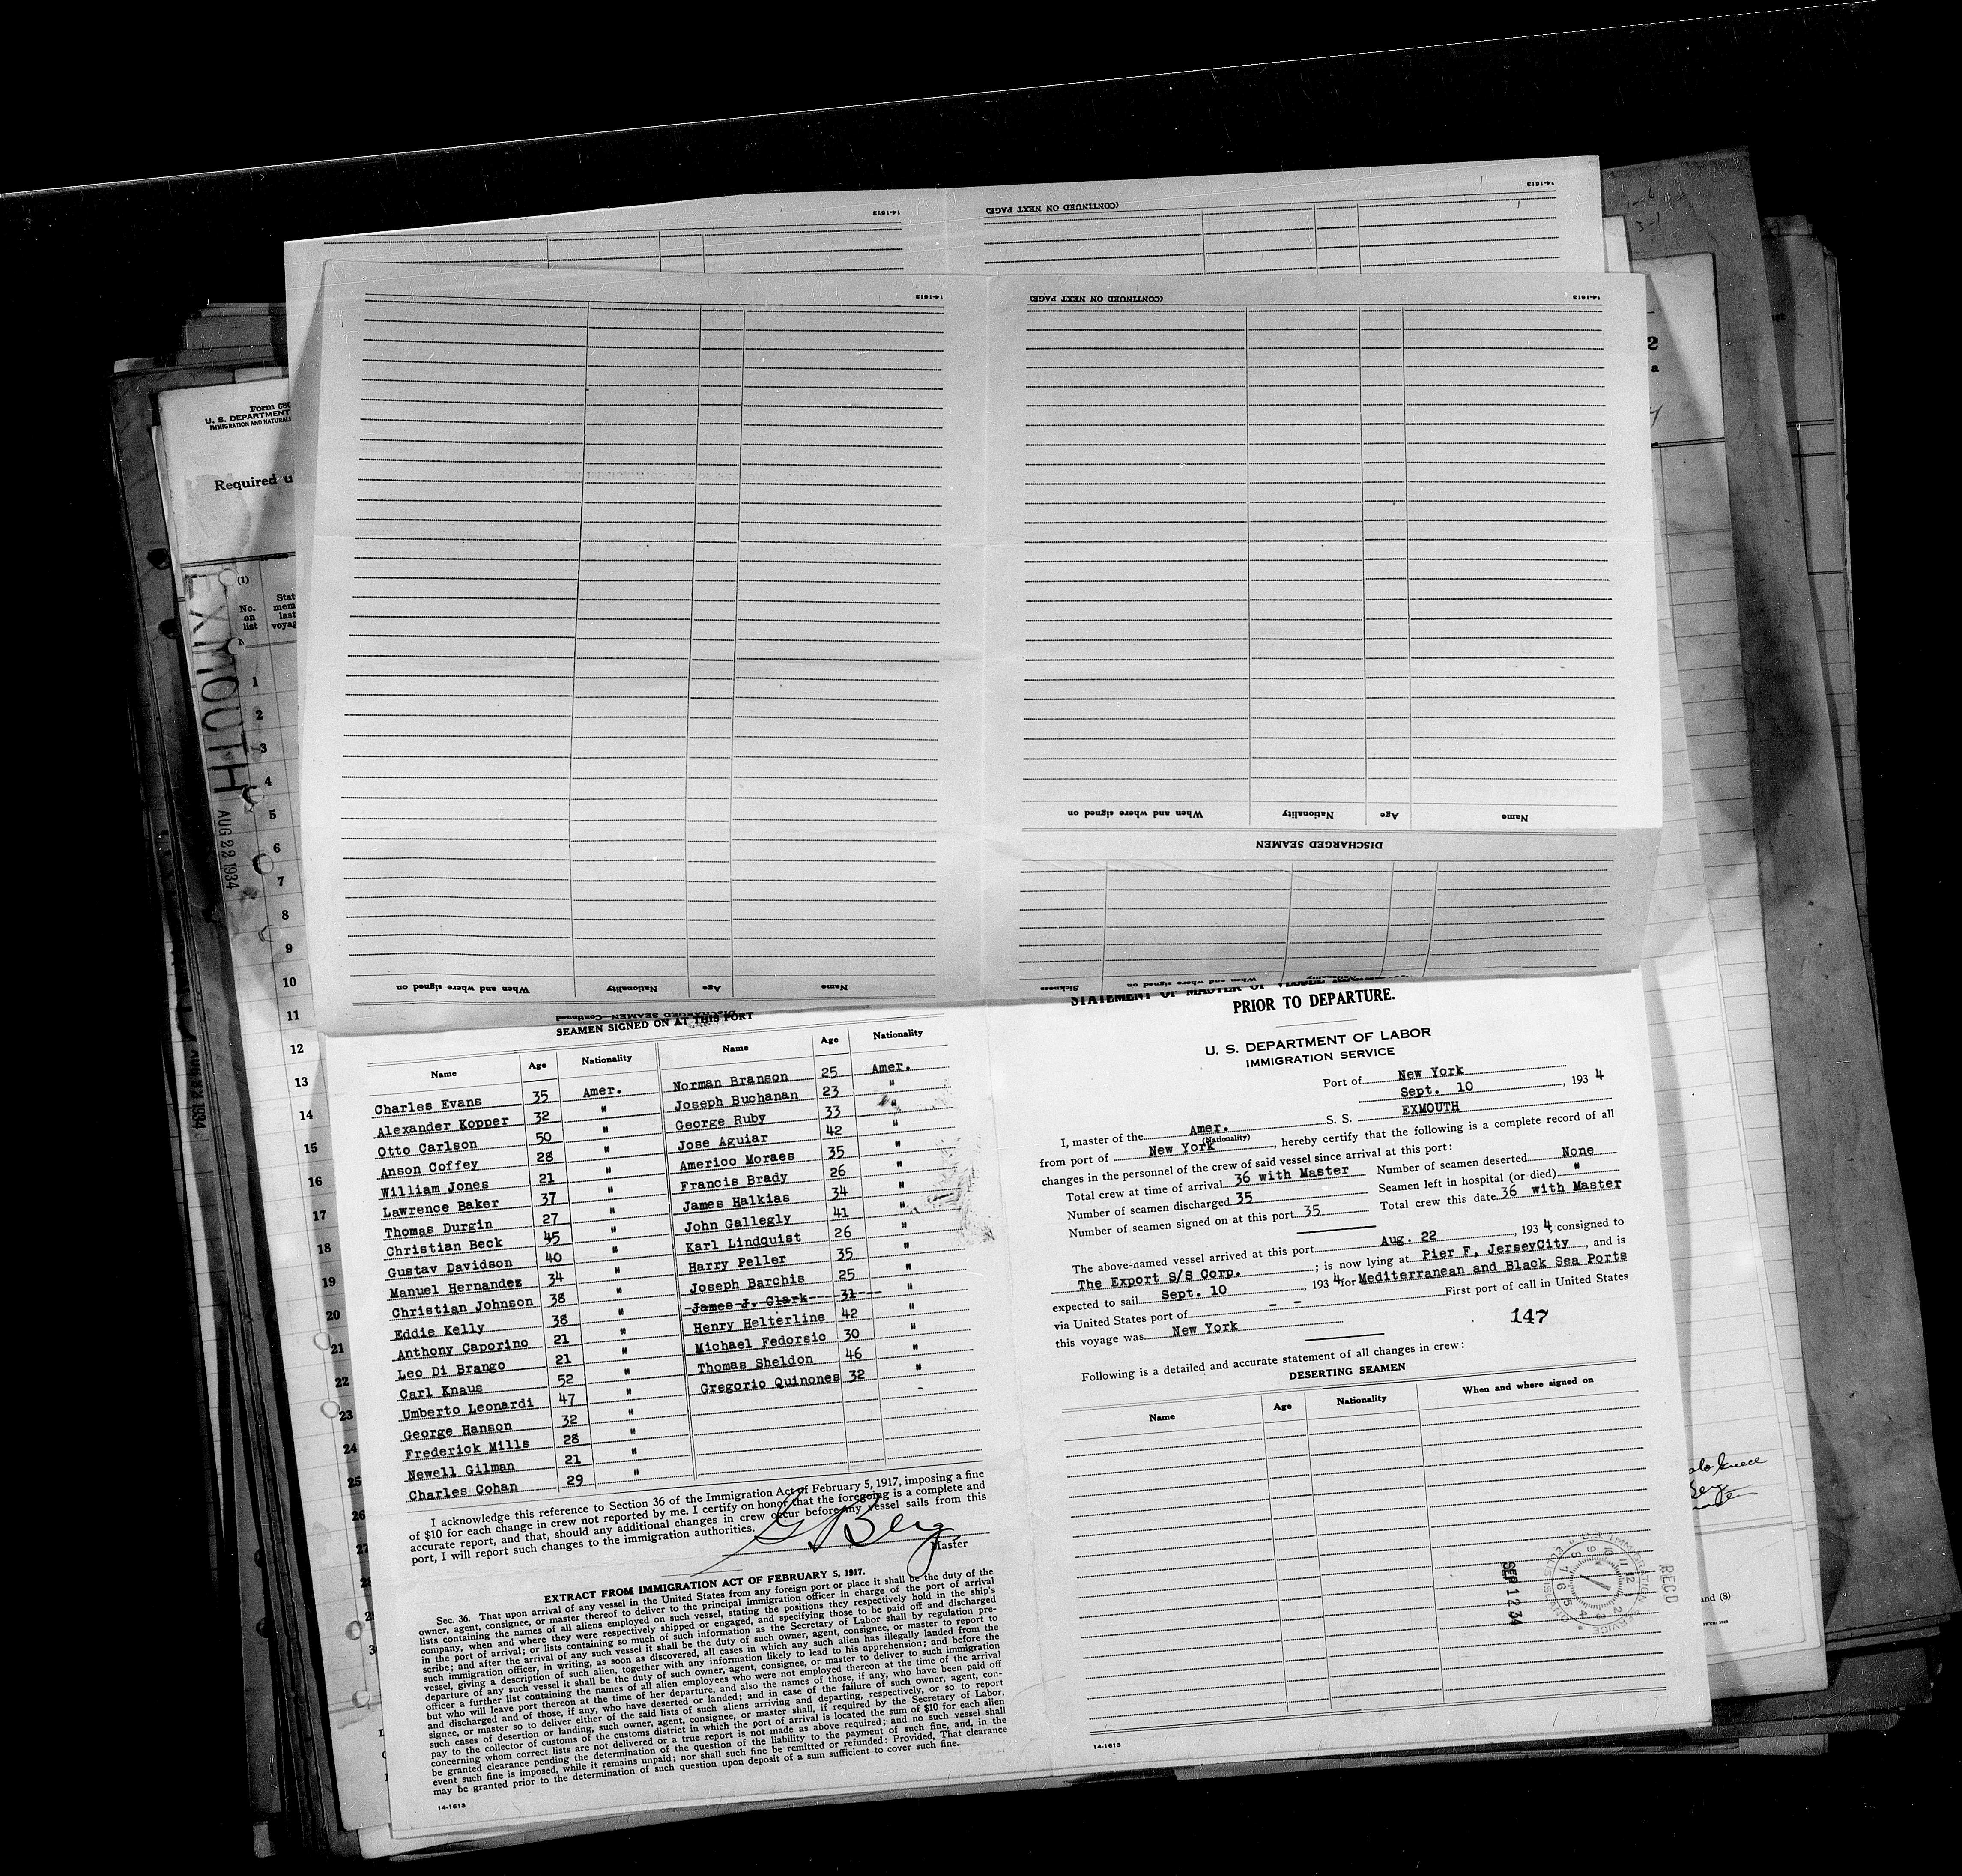 14-1613
(CONTINUED ON NEXT PAGE)
14-1613
14-1613
(CONTINUED ON NEXT PAGE)
14-1613
When and where signed on Nationality Age Name
DISCHARGED SEAMEN
When and where signed on Nationality Age Name
Sickness When and where signed on Nationality
DISCHARGED SEAMEN—Continued
U. S. DEPARTMENT
Required u
(1)
No. on list
EXMOUTH
AUG 22 1934
AUG 22 1934
1
2
3
4
5
6
7
8
9
10
11
12
13
14
15
16
17
18
19
20
21
22
23
24
25
26
SEAMEN SIGNED ON AT THIS PORT
Name Age Nationality Name Age Nationality
Charles Evans 35 Amer. Norman Branson 25 Amer.
Alexander Kopper 32 " Joseph Buchanan 23 "
Otto Carlson 50 " George Ruby 33 "
Anson Coffey 28 " Jose Aguiar 42 "
William Jones 21 " Americo Moraes 35 "
Lawrence Baker 37 " Francis Brady 26 "
Thomas Durgin 27 " James Halkias 34 "
Christian Beck 45 " John Gallegly 41 "
Gustav Davidson 40 " Karl Lindquist 26 "
Manuel Hernandez 34 " Harry Peller 35 "
Christian Johnson 38 " Joseph Barchis 25 "
Eddie Kelly 38 " James J. Clark 31 "
Anthony Caporino 21 " Henry Helterline 42 "
Leo Di Brango 21 " Michael Fedorsio 30 "
Carl Knaus 52 " Thomas Sheldon 46 "
Umberto Leonardi 47 " Gregorio Quinones 32 "
George Hanson 32 "
Frederick Mills 28 "
Newell Gilman 21 "
Charles Cohan 29 "
I acknowledge this reference to Section 36 of the Immigration Act of February 5, 1917, imposing a fine
of $10 for each change in crew not reported by me. I certify on honor that the foregoing is a complete and
accurate report, and that, should any additional changes in crew occur before any vessel sails from this
port, I will report such changes to the immigration authorities.
G Berg
Master
EXTRACT FROM IMMIGRATION ACT OF FEBRUARY 5, 1917.
Sec. 36. That upon arrival of any vessel in the United States from any foreign port or place it shall be the duty of the
owner, agent, consignee, or master thereof to deliver to the principal immigration officer in charge of the port of arrival
lists containing the names of all aliens employed on such vessel, stating the positions they respectively hold in the ship's
company, when and where they were respectively shipped or engaged, and specifying those to be paid off and discharged
in the port of arrival; or lists containing so much of such information as the Secretary of Labor shall by regulation pre-
scribe; and after the arrival of any such vessel it shall be the duty of such owner, agent, consignee, or master to report to
such immigration officer, in writing, as soon as discovered, all cases in which any such alien has illegally landed from the
vessel, giving a description of such alien, together with any information likely to lead to his apprehension; and before the
departure of any such vessel it shall be the duty of such owner, agent, consignee, or master to deliver to such immigration
officer a further list containing the names of all alien employees who were not employed thereon at the time of the arrival
but who will leave port thereon at the time of her departure, and also the names of those, if any, who have been paid off
and discharged and of those, if any, who have deserted or landed; and in case of the failure of such owner, agent, con-
signee, or master so to deliver either of the said lists of such aliens arriving and departing, respectively, or so to report
such cases of desertion or landing, such owner, agent, consignee, or master shall, if required by the Secretary of Labor,
pay to the collector of customs of the customs district in which the port of arrival is located the sum of $10 for each alien
concerning whom correct lists are not delivered or a true report is not made as above required; and no such vessel shall
be granted clearance pending the determination of the question of the liability to the payment of such fine, and, in the
event such fine is imposed, while it remains unpaid; nor shall such fine be remitted or refunded: Provided, That clearance
may be granted prior to the determination of such question upon deposit of a sum sufficient to cover such fine.
14-1613
STATEMENT OF MASTER OF VESSEL
PRIOR TO DEPARTURE.
U. S. DEPARTMENT OF LABOR
IMMIGRATION SERVICE
Port of New York
Sept. 10, 1934
I, master of the Amer. S. S. EXMOUTH
(Nationality)
from port of New York, hereby certify that the following is a complete record of all
changes in the personnel of the crew of said vessel since arrival at this port:
Total crew at time of arrival 36 with Master Number of seamen deserted None
Number of seamen discharged 35 Seamen left in hospital (or died) "
Number of seamen signed on at this port 35 Total crew this date 36 with Master
The above-named vessel arrived at this port Aug. 22, 1934, consigned to
The Export S/S Corp.; is now lying at Pier F, JerseyCity, and is
expected to sail Sept. 10, 1934 for Mediterranean and Black Sea Ports
via United States port of - - First port of call in United States
this voyage was New York
147
Following is a detailed and accurate statement of all changes in crew:
DESERTING SEAMEN
Name Age Nationality When and where signed on
SEP 12 34
REC'D
14-1613
and (8)